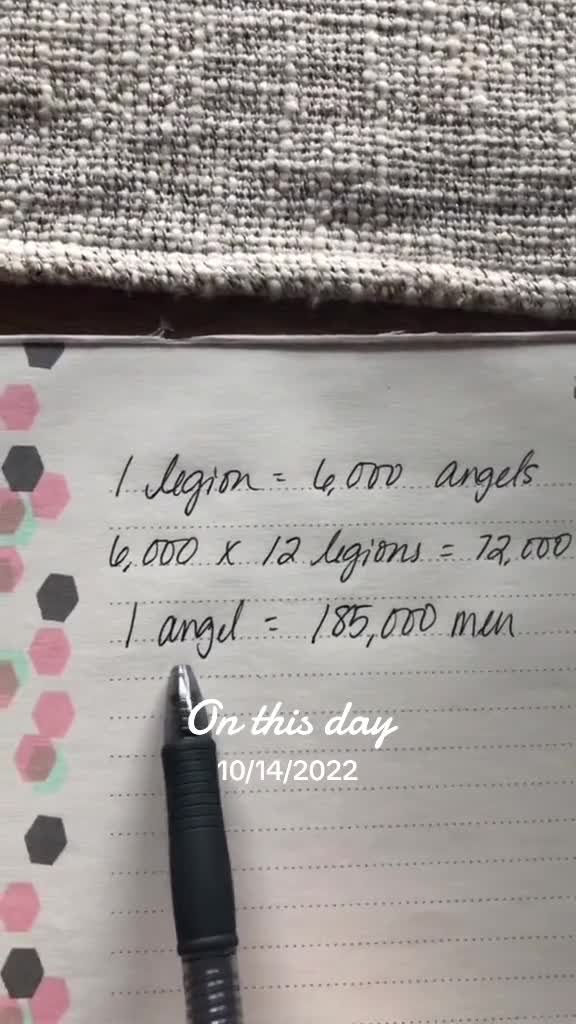 1 legion = 6,000 angels
6,000 x 12 legions = 72,000
1 angel = 185,000 men
On this day
10/14/2022